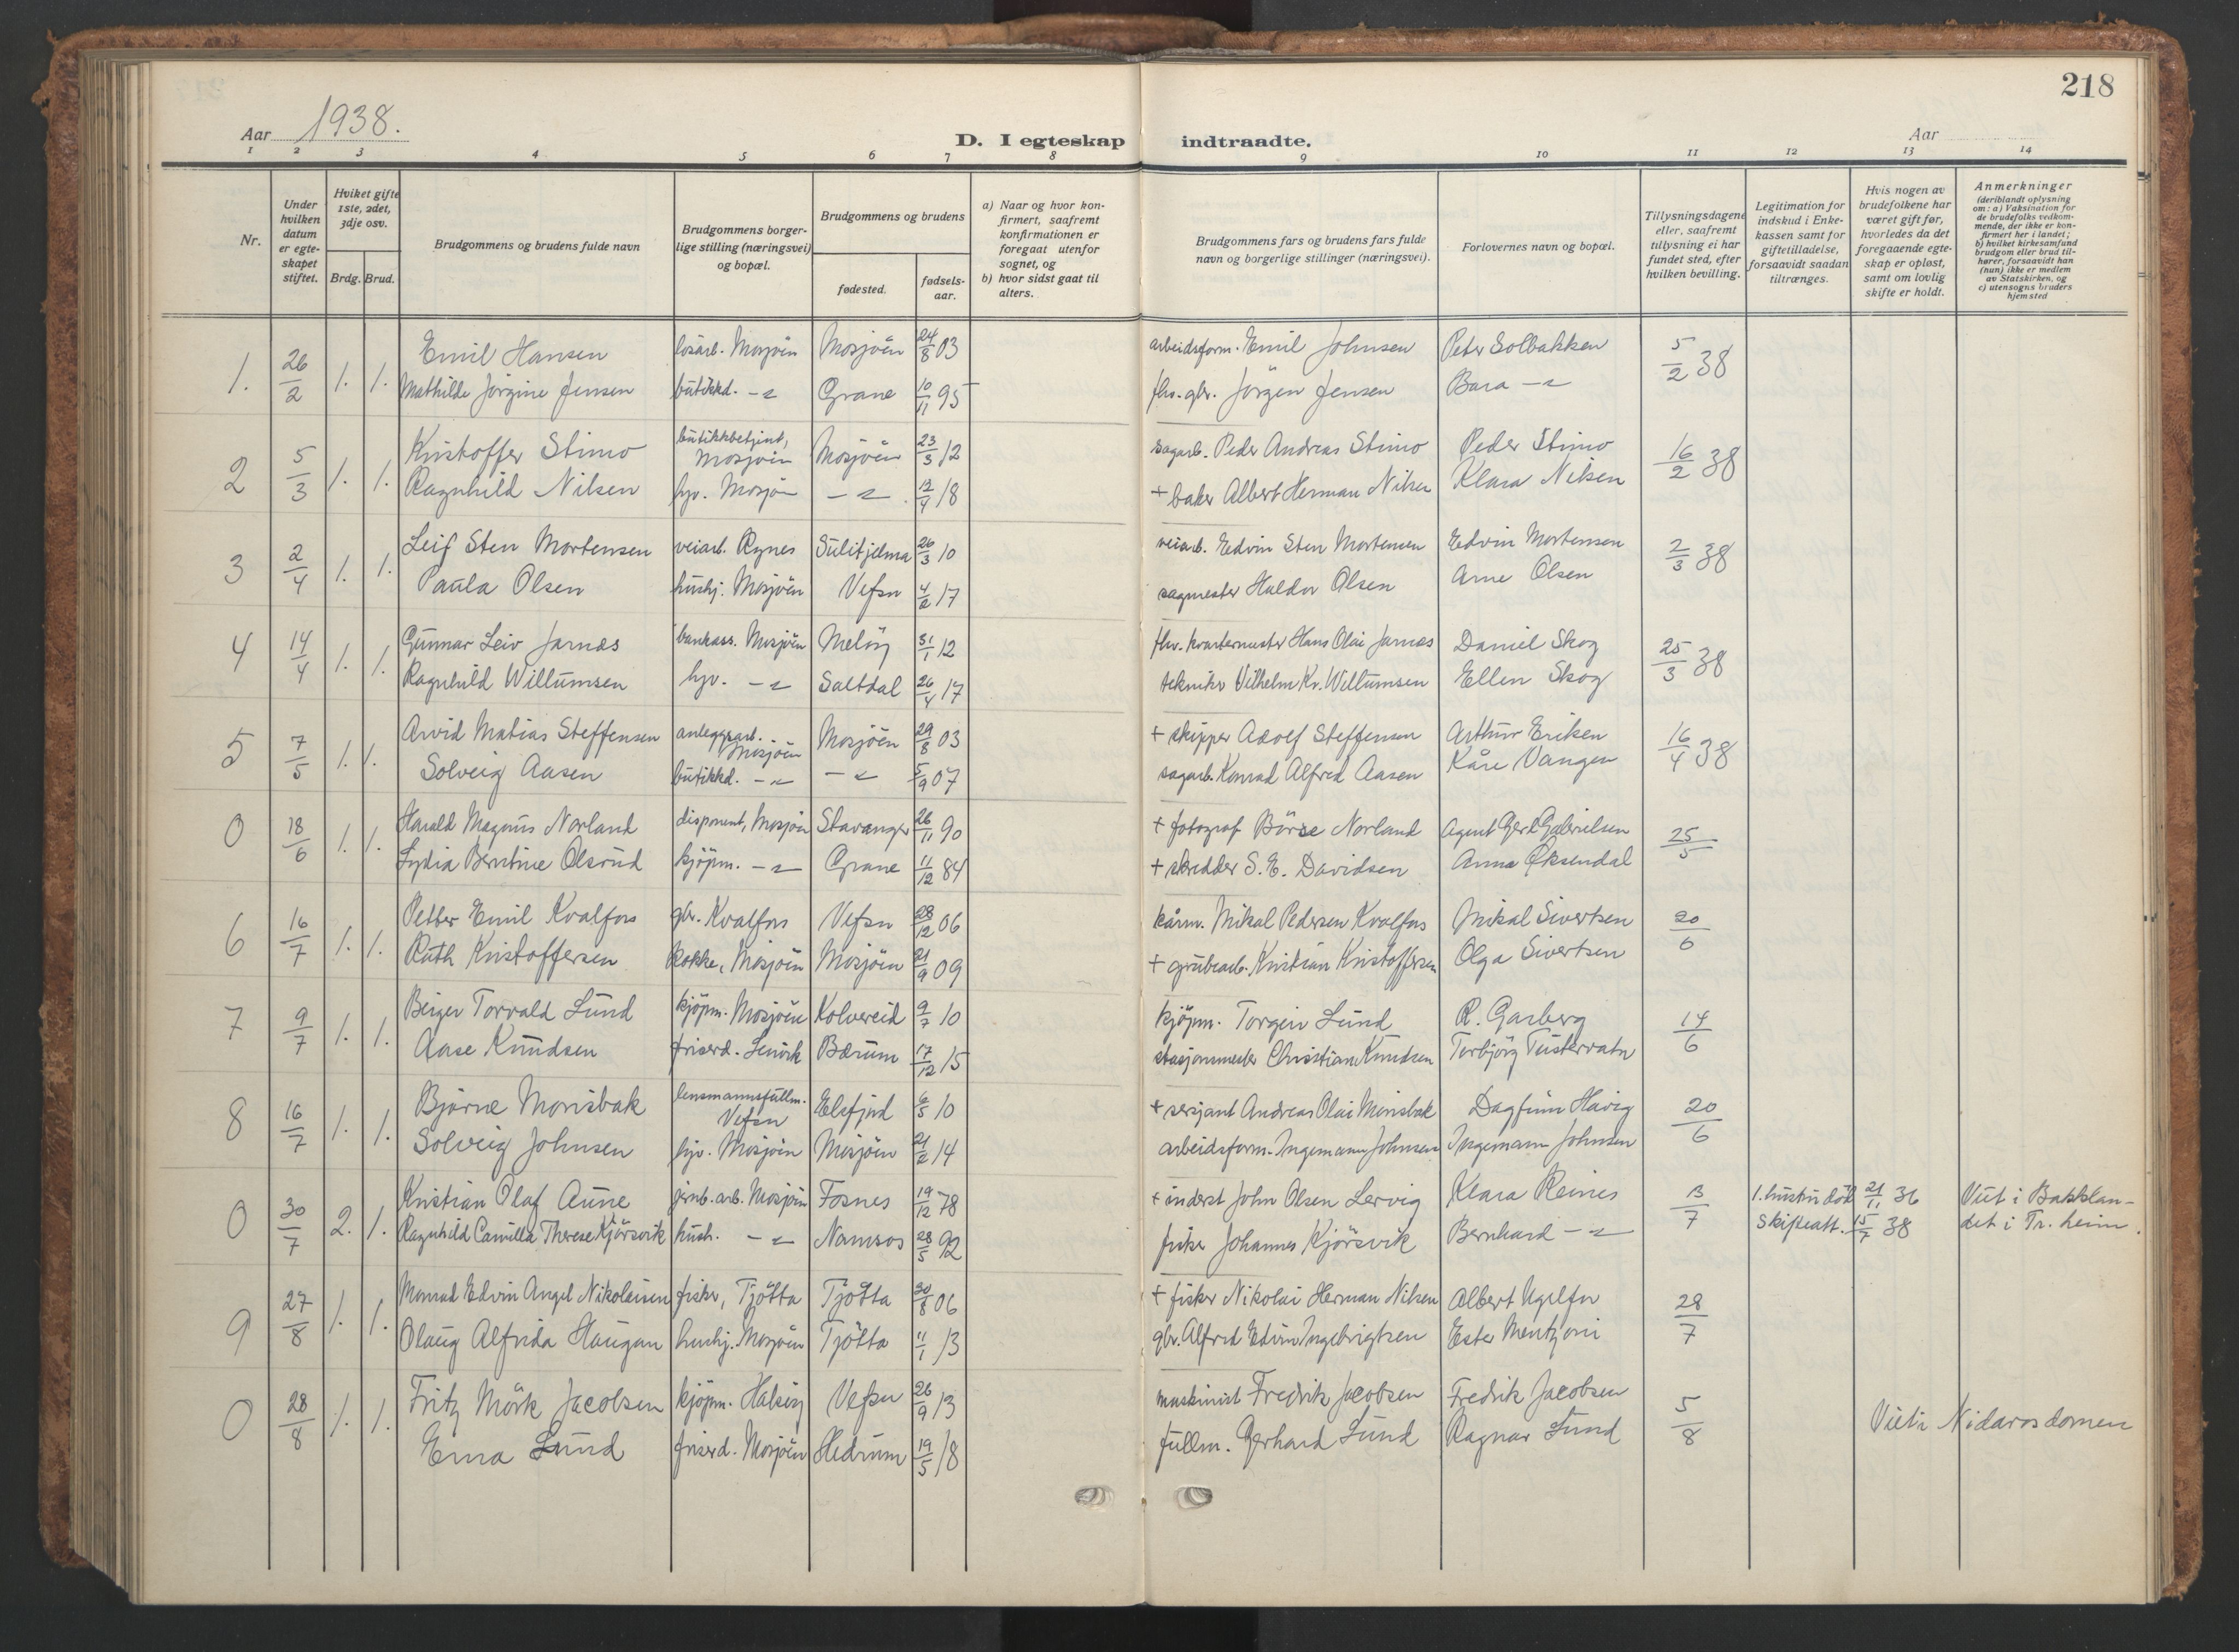 218
Aar 1938.
D. I egteskap indtraadte.
Aar
1 2 3 4 5 6 7 8 9 10 11 12 13 14
Nr.
Under hvilken datum er egteskapet stiftet.
Hvilket gifte 1ste, 2det, 3dje osv.
Brdg. Brud.
Brudgommens og brudens fulde navn
Brudgommens borgerlige stilling (næringsvei) og bopæl.
Brudgommens og brudens
fødested.
fødselsaar.
a) Naar og hvor konfirmert, saafremt konfirmationen er foregaat utenfor sognet, og
b) hvor sidst gaat til alters.
Brudgommens fars og brudens fars fulde navn og borgerlige stillinger (næringsvei).
Forlovernes navn og bopæl.
Tillysningsdagene eller, saafremt tillysning ei har fundet sted, efter hvilken bevilling.
Legitimation for indskud i Enkekassen samt for giftetilladelse, forsaavidt saadan tiltrænges.
Hvis nogen av brudefolkene har været gift før, hvorledes da det foregaaende egteskap er opløst, samt om lovlig skifte er holdt.
Anmerkninger (deriblandt oplysning om: a) Vaksination for de brudefolks vedkommende, der ikke er konfirmert her i landet; b) hvilket kirkesamfund brudgom eller brud tilhører, forsaavidt han (hun) ikke er medlem av Statskirken, og c) utensogns bruders hjemsted
1. 26/2 1. 1. Emil Hansen løsarb. Mosjøen Mosjøen 24/8 03 arbeidsform. Emil Johnsen Peter Solbakken 5/2 38
Mathilde Jørgine Jensen butikkd. -"- Grane 10/11 95 fhv. gbr. Jørgen Jensen Bara -"-
2 5/3 1. 1. Kristoffer Stimo butikkbetjent, Mosjøen Mosjøen 23/3 12 sagarb. Peder Andreas Stimo Peder Stimo 16/2 38
Ragnhild Nilsen hjv. Mosjøen -"- 12/4 18 + baker Albert Herman Nilsen Klara Nilsen
3 2/4 1. 1. Leif Sten Mortensen veiarb. Rynes Sulitjelma 26/3 10 veiarb. Edvin Sten Mortensen Edvin Mortensen 2/3 38
Paula Olsen hushj. Mosjøen Vefsn 4/2 17 sagmester Haldor Olsen Arne Olsen
4 14/4 1. 1. Gunnar Leiv Jarnæs bankass. Mosjøen Meløy 31/1 12 fhv. kvartermester Hans Olai Jarnæs Daniel Skog 25/3 38
Ragnhild Willumsen hjv. -"- Saltdal 26/4 17 tekniker Vilhelm Kr. Willumsen Ellen Skog
5 7/5 1. 1. Arvid Matias Steffensen anleggsarb. Mosjøen Mosjøen 29/8 03 + skipper Adolf Steffensen Arthur Eriksen 16/4 38
Solveig Aasen butikkd. -"- -"- 5/9 07 sagarb. Konrad Alfred Aasen Kåre Vangen
0 18/6 1. 1. Harald Magnus Norland disponent, Mosjøen Stavanger 26/11 90 + fotograf Børse Norland Agent Gerd Gabrielsen 25/5
Lydia Berntine Olsrud kjøpm. -"- Grane 11/12 84 + skredder S. E. Davidsen Anna Øksendal
6 16/7 1. 1. Petter Emil Kvalfors gbr. Kvalfors Vefsn 28/12 06 kårm. Mikal Pedersen Kvalfors Mikal Sivertsen 20/6
Ruth Kristoffersen kokke, Mosjøen Mosjøen 21/9 09 + grubearb. Kristian Kristoffersen Olga Sivertsen
7 9/7 1. 1. Birger Torvald Lund kjøpm. Mosjøen Kolvereid 9/7 10 kjøpm. Torgeir Lund R. Garberg 14/6
Aase Knudsen friserd. Lenvik Bærum 17/12 15 stasjonsmester Christian Knudsen Torbjørg Tustervatn
8 16/7 1. 1. Bjarne Monsbak lensmannsfullm. Vefsn Elsfjord 6/5 10 + sersjant Andreas Olai Monsbak Dagfinn Havig 20/6
Solveig Johnsen hjv. Mosjøen Mosjøen 21/2 14 arbeidsform. Ingemann Johnsen Ingemann Johnsen
0 30/7 2. 1. Kristian Olaf Aune jernb.arb. Mosjøen Fosnes 19/12 78 + inderst John Olsen Lervig Klara Reines 13/7 1. hustru död 21/11 36 Viet i Bakklan-
Ragnhild Camilla Therese Kjørsvik hush. -"- Namsos 28/5 92 fisker Johannes Kjørsvik Bernhard -"- Skifteatt. 15/7 38 det i Tr.heim.
9 27/8 1. 1. Monrad Edvin Angel Nikolaisen fisker, Tjøtta Tjøtta 30/8 06 + fisker Nikolai Herman Nilsen Albert Ugelfor 28/7
Olaug Alfrida Haugan hushj. Mosjøen Tjøtta 11/1 13 gbr. Alfred Edvin Ingebrigtsen Ester Mentzoni
0 28/8 1. 1. Fritz Mörk Jacobsen kjøpm. Halsøy Vefsn 26/9 13 maskinist Fredrik Jacobsen Fredrik Jacobsen 5/8 Viet i Nidarosdomen
Erna Lund friserd. Mosjøen Hedrum 19/5 18 fullm. Gerhard Lund Ragnar Lund